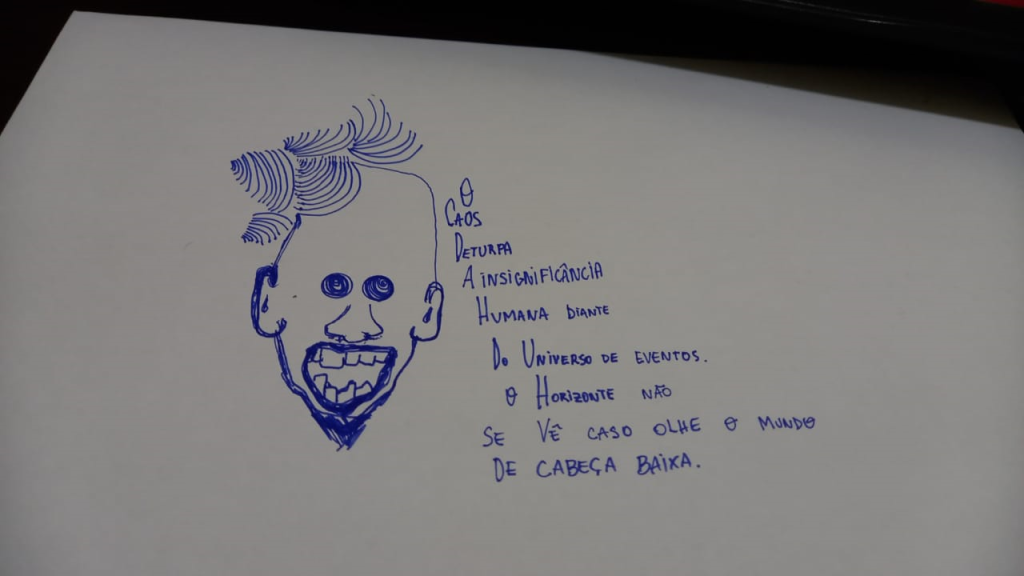 O
CAOS
DETURPA
A INSIGNIFICÂNCIA
HUMANA DIANTE
DO UNIVERSO DE EVENTOS.
O HORIZONTE NÃO
SE VÊ CASO OLHE O MUNDO
DE CABEÇA BAIXA.